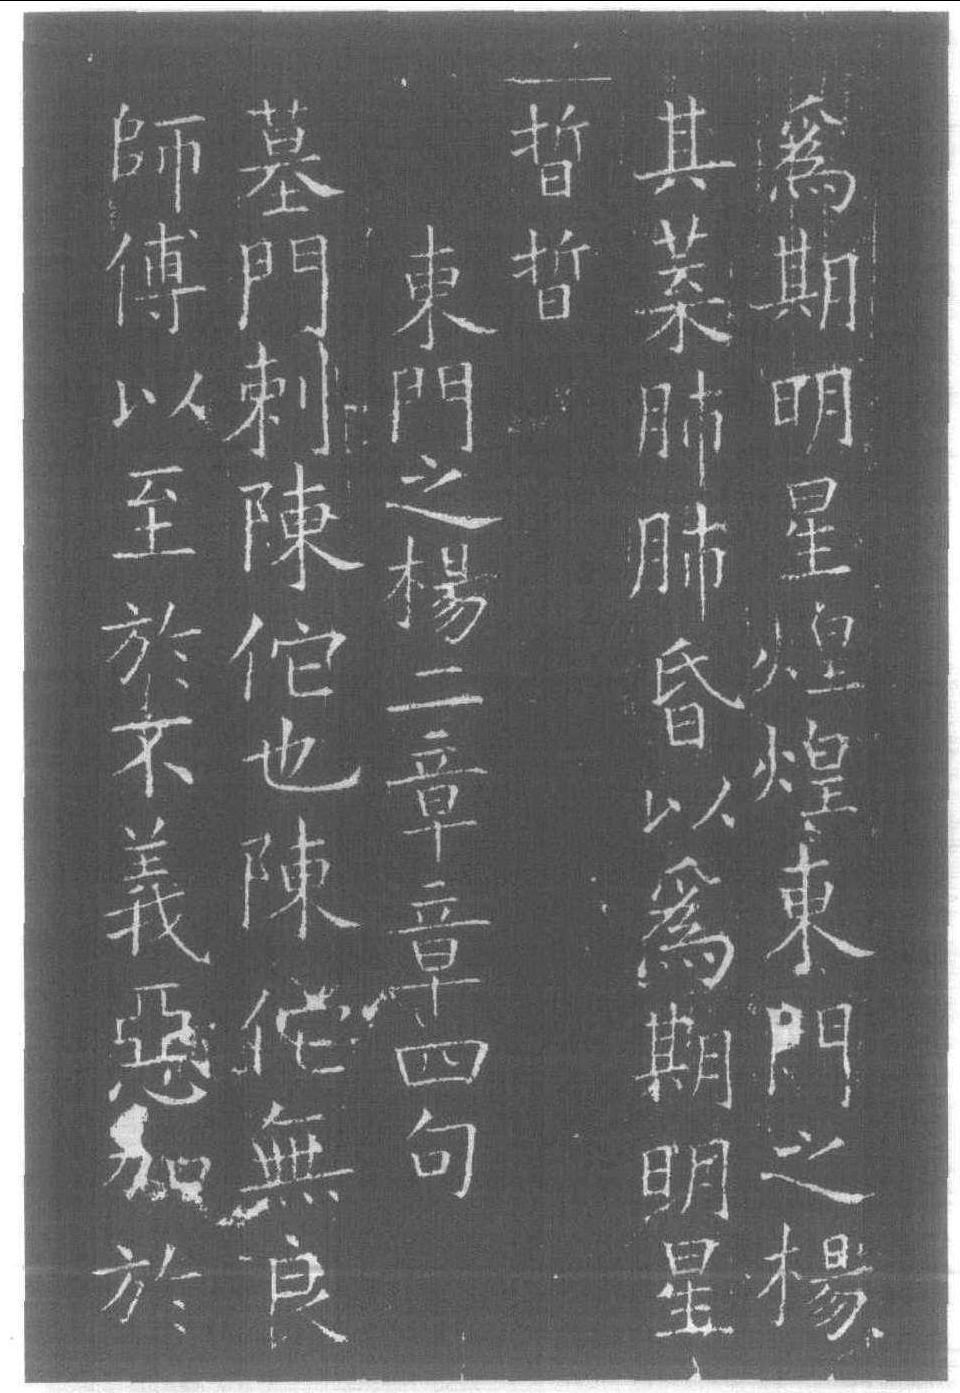 為期明星煌煌東門之楊
其葉肺肺昏以為期明星
晢晢
東門之楊二章章四句
墓門刺陳佗也陳佗無良
師傅以至於不義惡加於